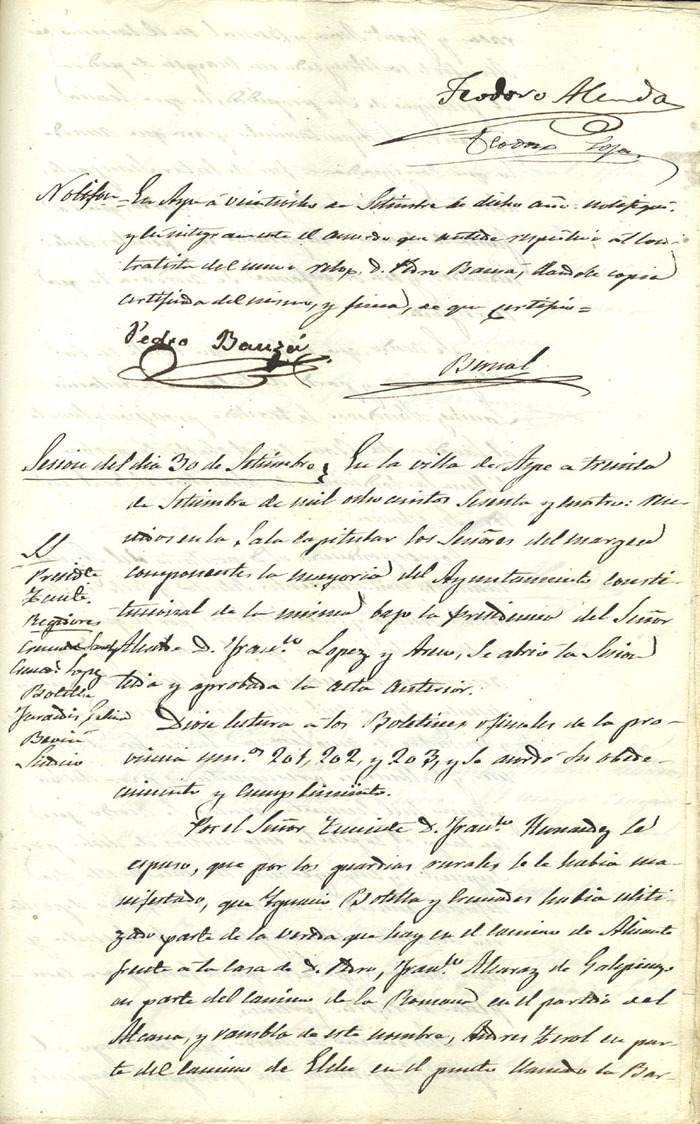 Teodoro Alenda
Teodoro
Notifon = En Aspe á veintiocho de Setiembre de dicho año: notifiqué
y leí integramente el acuerdo que antede respectivo al con
tratista del nuevo relox, D. Pedro Bauza, dandole copia
certificada del mismo, y firma, de que certifico =
Pedro Bauzá
Bernal
Sesion del dia 30 de Setiembre; En la villa de Aspe a treinta
de Setiembre de mil ochocientos sesenta y cuatro: reu-
nidos en la Sala capitular los Señores del margen
SS
Preside
Tente.
Regidores
Lopez
Botella
Síndico
componentes la mayoria del Ayuntamiento consti-
tucional de la misma bajo la presidencia del Señor
Alcalde D. Franco Lopez y se abrio la Sesion
leida y aprobada la acta anterior.
Diose lectura a los Boletines oficiales de la pro-
vincia nums 201, 202, y 203, y se acordó su obede-
cimiento y cumplimiento.
Por el Señor Teniente D. Franco Hernandez se
espuso, que por los guardias rurales se le habia ma-
nifestado, que Ygnacio Botella y Cremades habia utili-
zado parte de la vereda que hay en el camino de Alicante
frente á la casa de D. Pedro, Franco Alcaraz de Galepienzo
en parte del camino de la Romana en el partido del
Alcana, y rambla de este nombre, Andres Terol en par-
te del camino de Elche en el punto llamado la Bar-